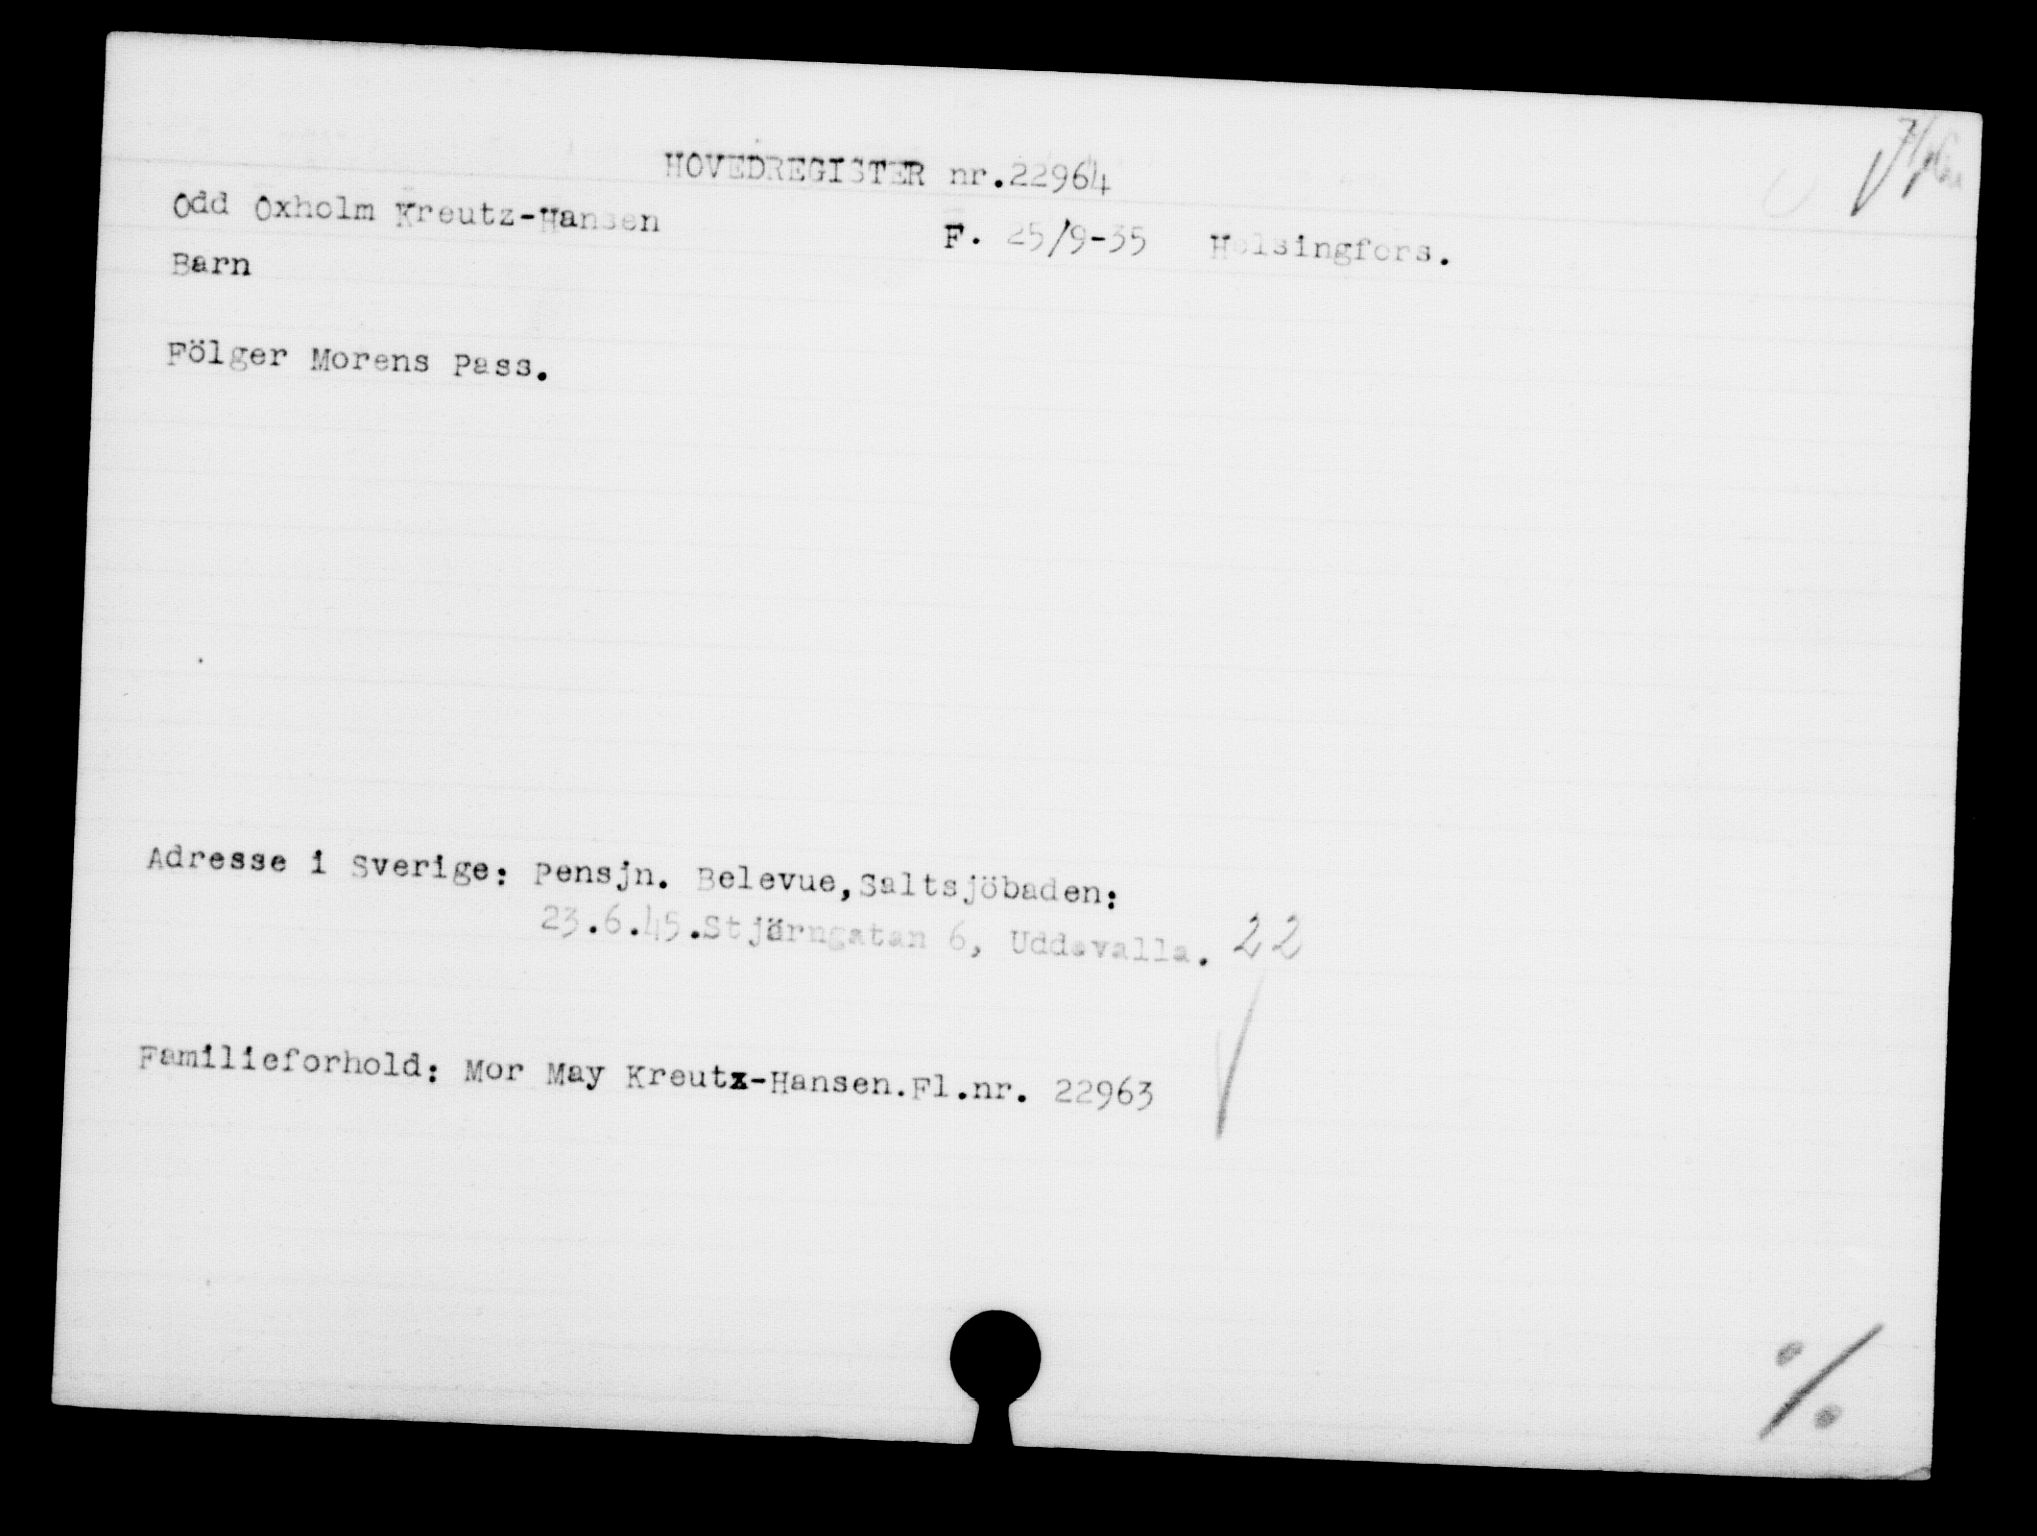 HOVEDREGISTER nr.22964
Odd Oxholm Kreutz-Hansen F. 25/9-35 Helsingfors.
Barn
Fölger Morens Pass.
Adresse i Sverige: Pensjn. Belevue,Saltsjöbaden:
23.6.45.Stjärngatan 6, Uddevalla. 22
Familieforhold: Mor May Kreutz-Hansen.Fl.nr. 22963
%